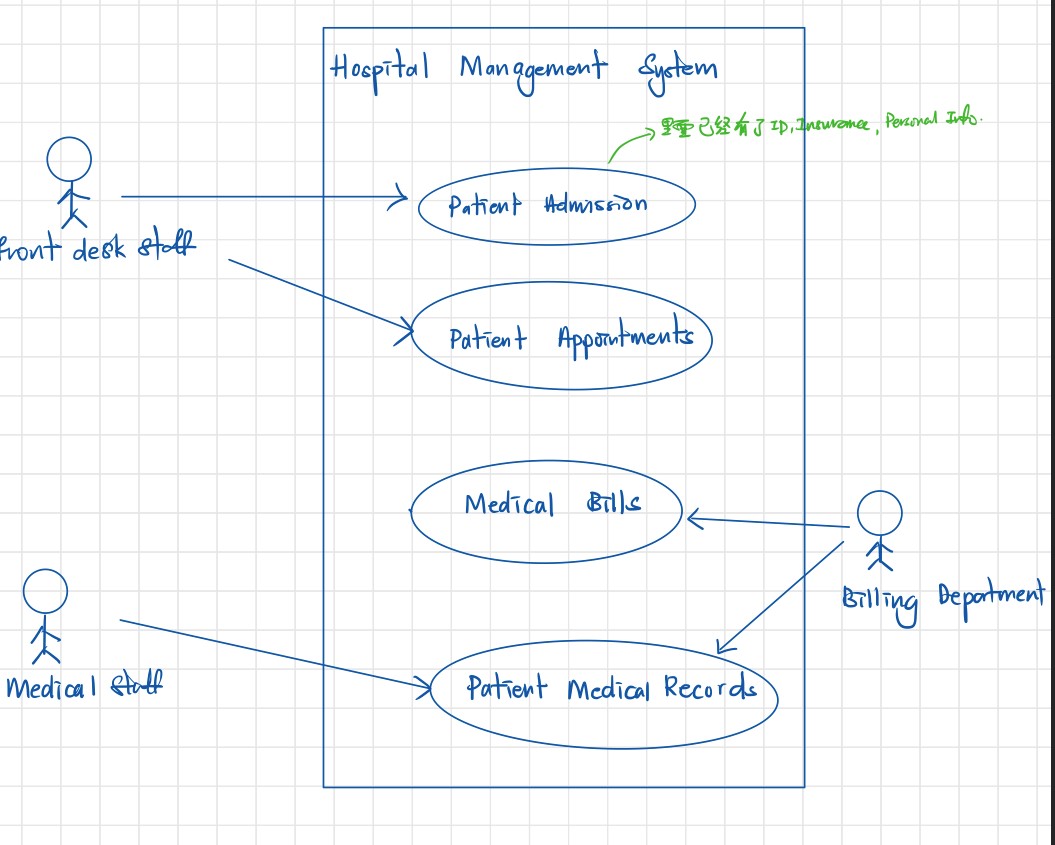 Hospital Management System
里面已经有了 ID, Insurance, Personal Info.
Patient Admission
front desk staff
Patient Appointments
Medical Bills
Billing Department
Medical staff
Patient Medical Records